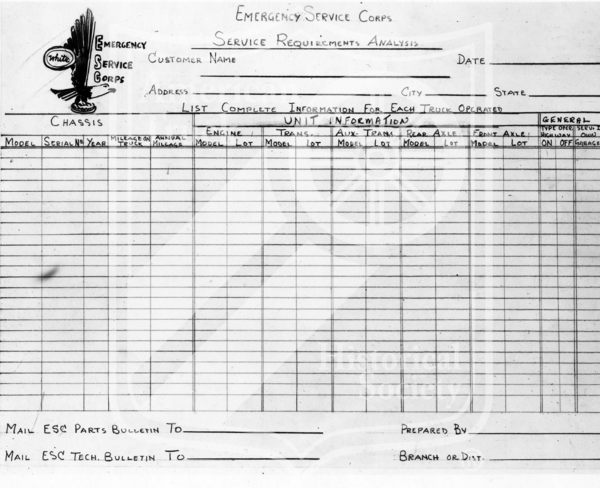 EMERGENCY SERVICE CORPS
SERVICE REQUIREMENTS ANALYSIS
White
EMERGENCY
SERVICE
CORPS
CUSTOMER NAME DATE
ADDRESS CITY STATE
LIST COMPLETE INFORMATION FOR EACH TRUCK OPERATED
CHASSIS UNIT INFORMATION GENERAL
ENGINE TRANS. AUX. TRANS. REAR AXLE FRONT AXLE TYPE OPER. HIGHWAY
MODEL SERIAL No YEAR MILEAGE ON TRUCK ANNUAL MILEAGE MODEL LOT MODEL LOT MODEL LOT MODEL LOT MODEL LOT ON OFF OWN GARAGE
Historical
Society
MAIL ESC PARTS BULLETIN TO PREPARED BY
MAIL ESC TECH. BULLETIN TO BRANCH OR DIST.